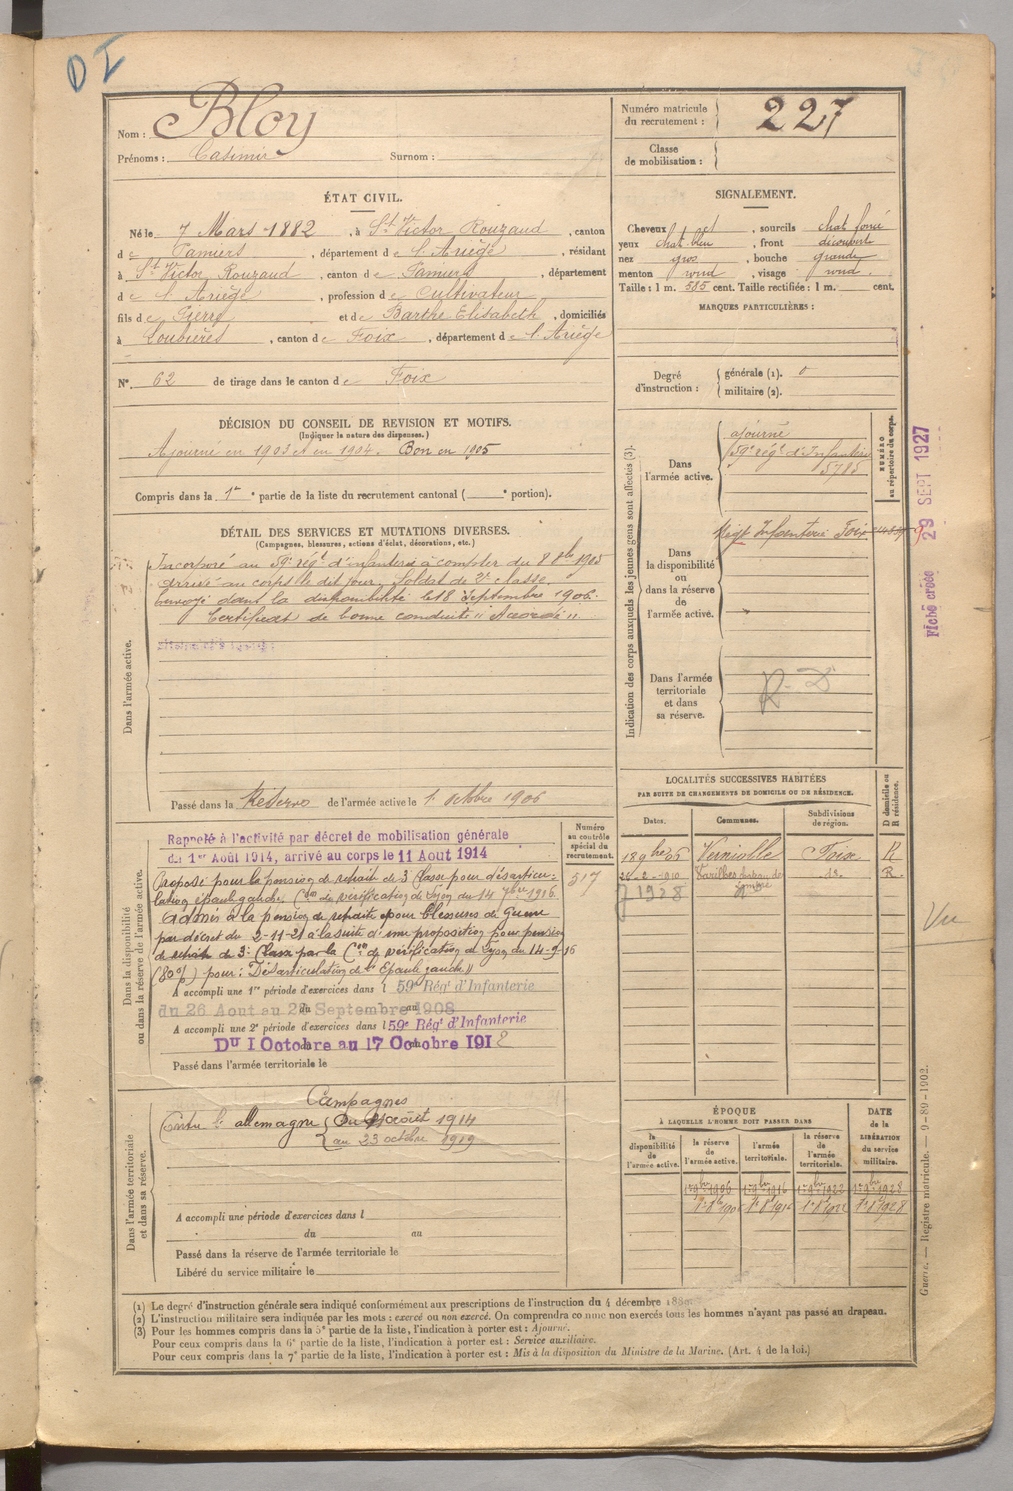 D I
Nom : Bloy
Prénoms : Casimir Surnom :
Numéro matricule du recrutement : 227
Classe de mobilisation :
ÉTAT CIVIL.
Né le 7 Mars 1882, à St Victor Rouzaud, canton
de Pamiers, département de l'Ariège, résidant
à St Victor Rouzaud, canton de Pamiers, département
de l'Ariège, profession de Cultivateur
fils de Pierre et de Barthe Elisabeth, domiciliés
à Loubières, canton de Foix, département de l'Ariège
N° 62 de tirage dans le canton de Foix
SIGNALEMENT.
Cheveux et, sourcils chat. foncé
yeux chat. bleu, front découvert
nez gros, bouche grande
menton rond, visage rond.
Taille : 1 m. 585 cent. Taille rectifiée : 1 m. cent.
MARQUES PARTICULIÈRES :
Degré d'instruction : générale (1). 0
militaire (2).
DÉCISION DU CONSEIL DE REVISION ET MOTIFS.
(Indiquer la nature des dispenses.)
Ajourné en 1903 et en 1904. Bon en 1905
Compris dans la 1re partie de la liste du recrutement cantonal ( e portion).
DÉTAIL DES SERVICES ET MUTATIONS DIVERSES.
(Campagnes, blessures, actions d'éclat, décorations, etc.)
Dans l'armée active.
Incorporé au 59e régt d'infanterie à compter du 8 8bre 1905
arrivé au corps le dit jour, Soldat de 2e classe.
Envoyé dans la disponibilité le 18 Septembre 1906.
Certificat de bonne conduite "Accordé"
Passé dans la Réserve de l'armée active le 1r octobre 1906
Indication des corps auxquels les jeunes gens sont affectés (3).
NUMÉRO au répertoire du corps.
Dans l'armée active.
ajourné
59e régt d'Infanterie
5785
Dans la disponibilité ou dans la réserve de l'armée active.
Régt Infanterie Foix
Dans l'armée territoriale et dans sa réserve.
R. D
Fiche créée 29 SEPT 1927
Dans la disponibilité ou dans la réserve de l'armée active.
Numéro au contrôle spécial du recrutement.
517
Rappelé à l'activité par décret de mobilisation générale
du 1er Août 1914, arrivé au corps le 11 Aout 1914
Proposé pour la pension de retraite de 3e Classe pour désarticu-
lation épaule gauche. Con de vérification de Lyon du 14 7bre 1916.
Admis à la pension de retraite pour blessures de Guerre
par décret du 2-11-21 à la suite d'une proposition pour pension
de retraite de 3e Classe par la Con de vérification de Lyon du 14-9-16
(80%) pour : Désarticulation de l'Epaule gauche"
A accompli une 1re période d'exercices dans l 59e Régt d'Infanterie
du 26 Aout au 22 Septembre 1908
A accompli une 2e période d'exercices dans l 59e Régt d'Infanterie
Du 1 Octobre au 17 Octobre 1912
Passé dans l'armée territoriale le
LOCALITÉS SUCCESSIVES HABITÉES
PAR SUITE DE CHANGEMENTS DE DOMICILE OU DE RÉSIDENCE.
Dates. Communes. Subdivisions de région. D domicile ou R résidence.
18 9bre 06 Verniolle Foix R
26-2-1910 Varilhes d° R.
Vu
Dans l'armée territoriale et dans sa réserve.
Campagnes
Contre l'allemagne Du août 1914
au 23 octobre 1919
A accompli une période d'exercices dans l
du au
Passé dans la réserve de l'armée territoriale le
Libéré du service militaire le
ÉPOQUE
À LAQUELLE L'HOMME DOIT PASSER DANS
DATE de la LIBÉRATION du service militaire.
la disponibilité de l'armée active. la réserve de l'armée active. l'armée territoriale. la réserve de l'armée territoriale.
1r 9br 1906 1r 9br 1916 1r 9br 1922 1r 9br 1928
1r 8b 1906 1r 8b 1916 1r 8b 1922 1r 8b 1928
Guerre. — Registre matricule. — 9-89-1902.
(1) Le degré d'instruction générale sera indiqué conformément aux prescriptions de l'instruction du 4 décembre 1889.
(2) L'instruction militaire sera indiquée par les mots : exercé ou non exercé. On comprendra comme non exercés tous les hommes n'ayant pas passé au drapeau.
(3) Pour les hommes compris dans la 5e partie de la liste, l'indication à porter est : Ajourné.
Pour ceux compris dans la 6e partie de la liste, l'indication à porter est : Service auxiliaire.
Pour ceux compris dans la 7e partie de la liste, l'indication à porter est : Mis à la disposition du Ministre de la Marine. (Art. 4 de la loi.)